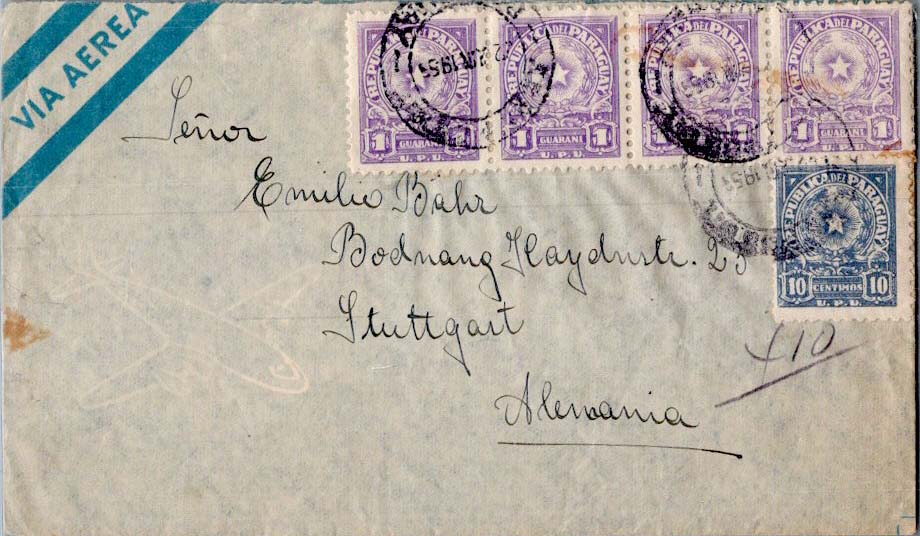 VIA AEREA
REPUBLICA DEL PARAGUAY
1 GUARANI 1
U.P.U.
REPUBLICA DEL PARAGUAY
1 GUARANI 1
U.P.U.
REPUBLICA DEL PARAGUAY
1 GUARANI 1
U.P.U.
REPUBLICA DEL PARAGUAY
1 GUARANI 1
U.P.U.
REPUBLICA DEL PARAGUAY
10 CENTIMOS 10
U.P.U.
Señor
Emilio Bähr
Bodnang Haydnstr. 25
Stuttgart
Alemania
410